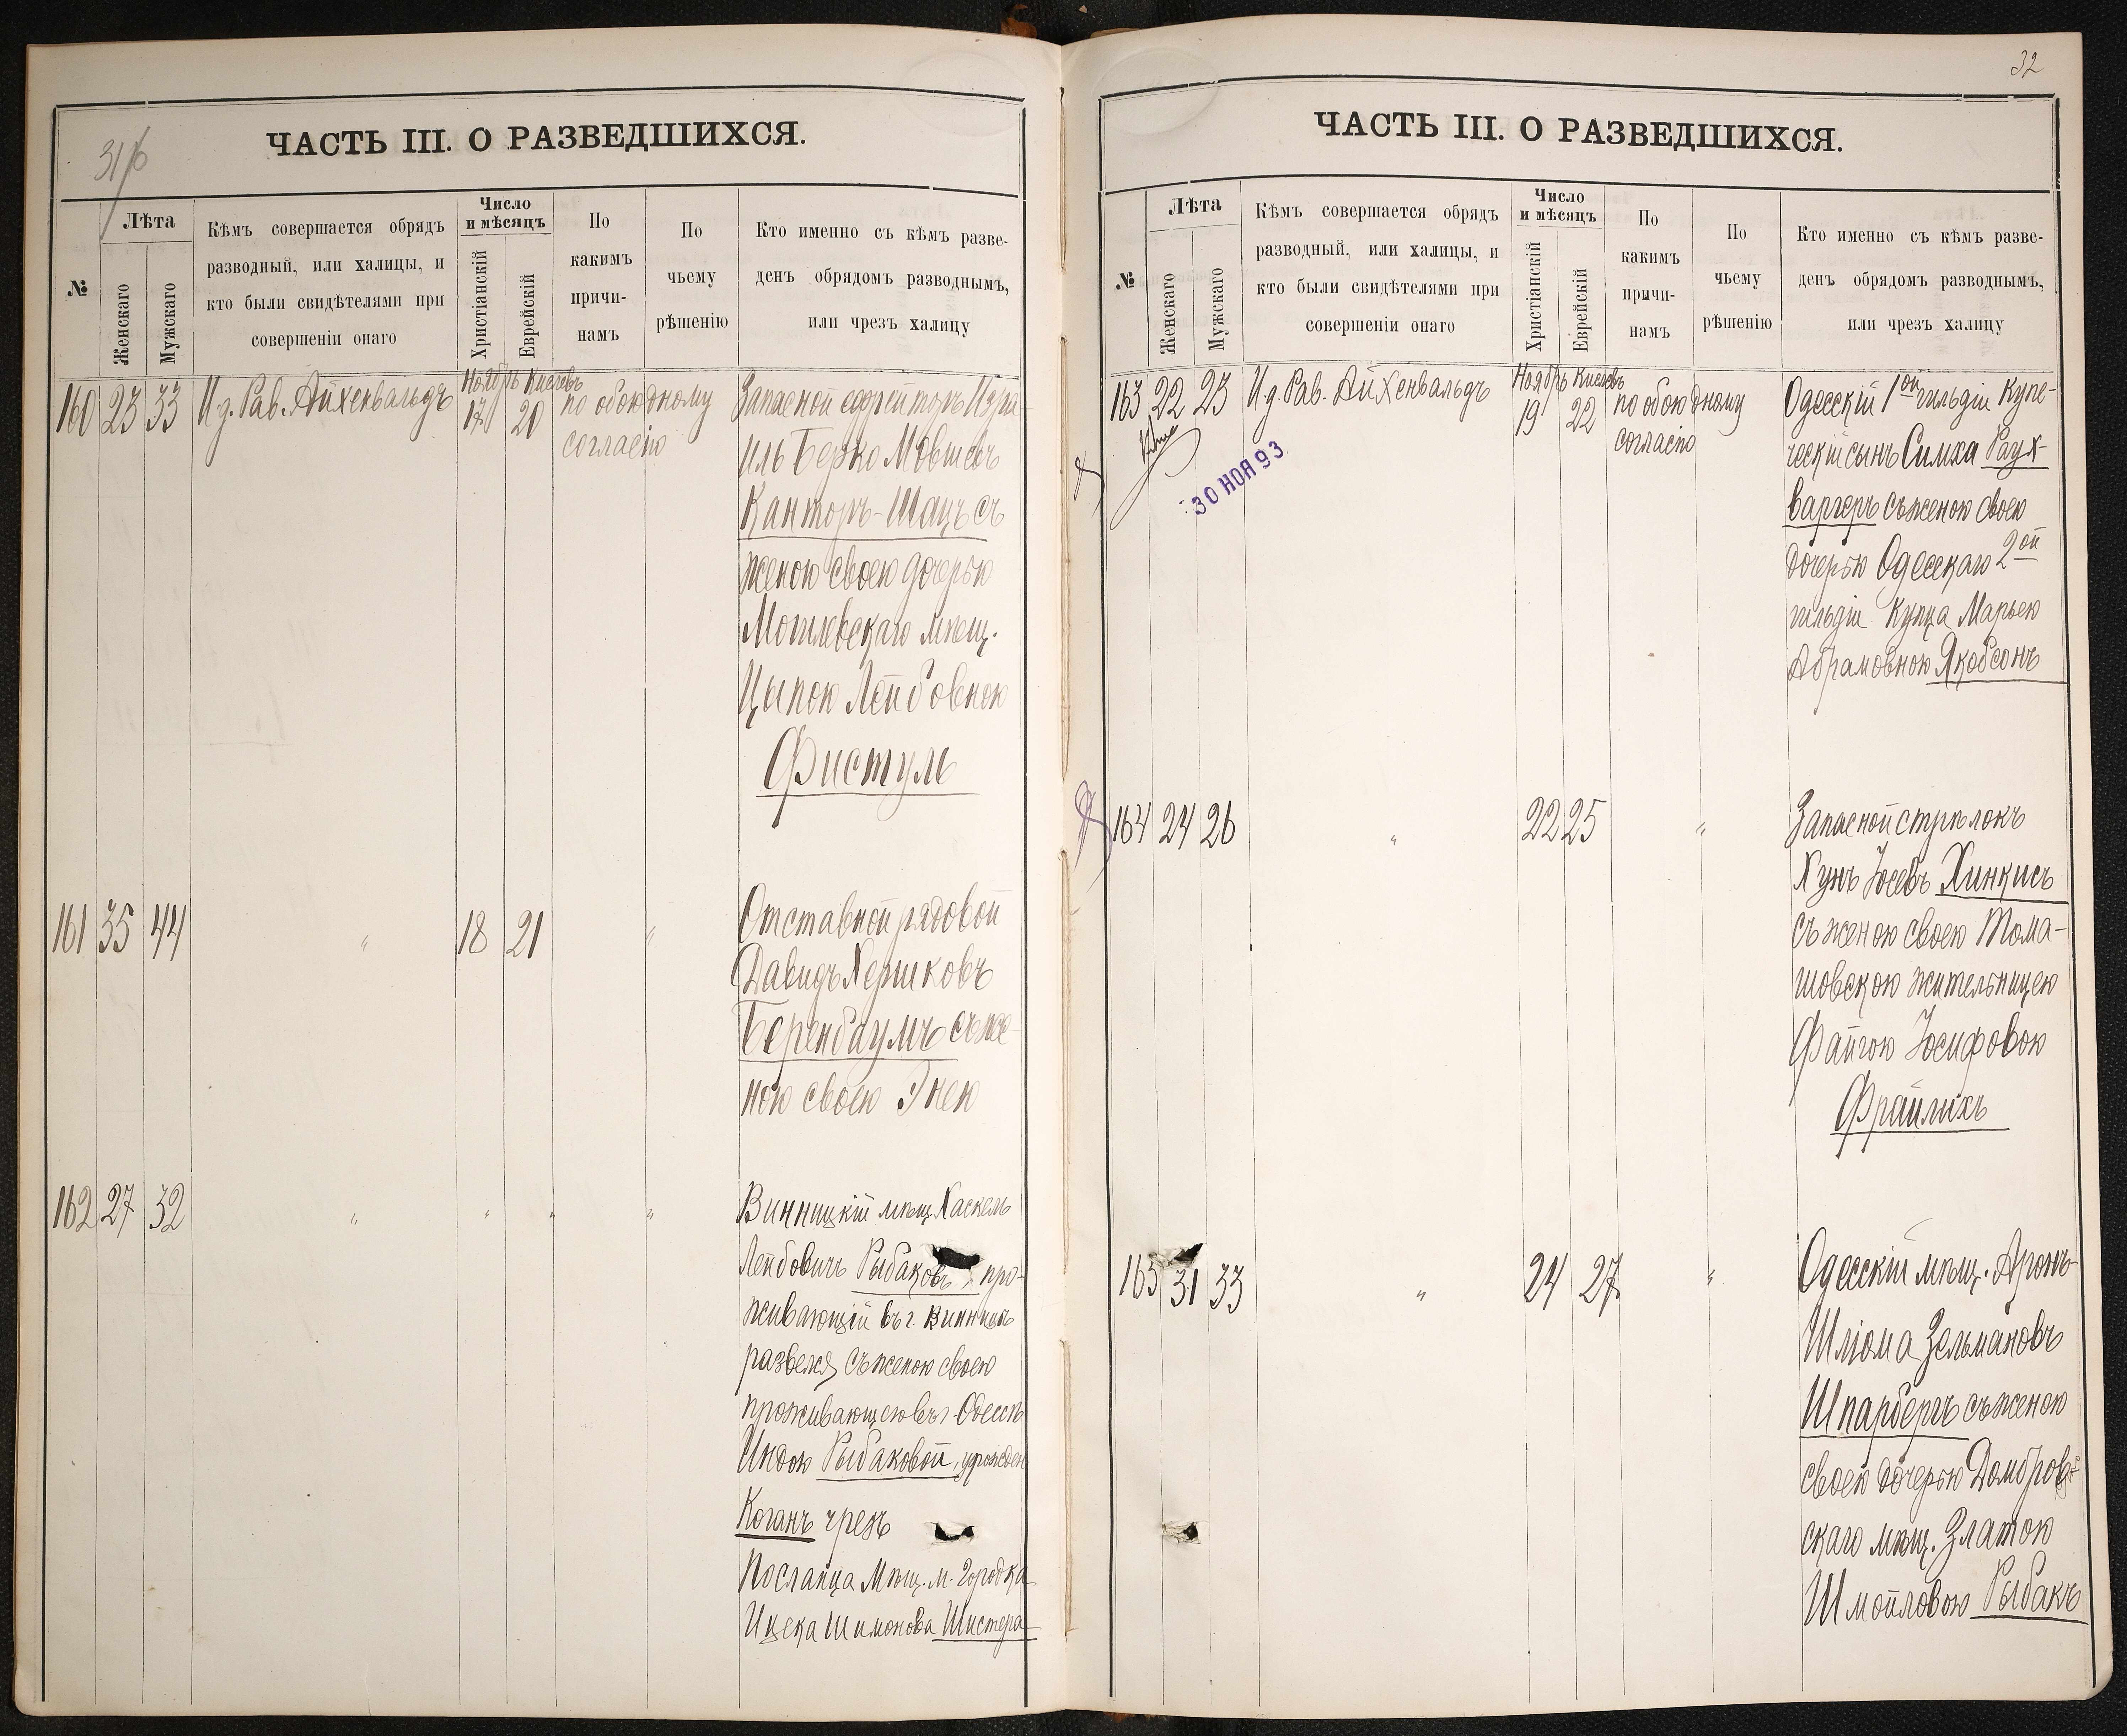 ЧАСТЬ III. О РАЗВЕДШИХСЯ.
№
Лѣта
Женскаго
Мужскаго
Кѣмъ совершается обрядъ
разводный, или халицы, и
кто были свидѣтелями при
совершеніи онаго
Число
и мѣсяцъ
Христіанскій
Еврейскій
По
какимъ
причи-
намъ
По
чьему
рѣшенію
Кто именно съ кѣмъ разве-
денъ обрядомъ разводнымъ,
или чрезъ халицу
Ноябрь Кислевъ
160 23 33 И.д. Рав. Айхенвальдъ 17 20 по обоюдному
согласію
Запасной ефрейторъ Изра-
иль Берко Мовшевъ
Канторъ-Шацъ съ
женою своею дочерью
Могилевскаго мѣщ.
Цыпою Лейбовною
Фистуль
161 35 44 " 18 21 "
Отставной рядовой
Давидъ Хершковъ
Беренбаумъ съ же-
ною своею Энею
162 27 32 " " " "
Винницкій мѣщ. Хаскель
Лейбовичъ Рыбаковъ, про-
живающій въ г. Винницѣ
развелся съ женою своею
проживающею въ г. Одессѣ
Индою Рыбаковой, урожден
Коганъ чрезъ
Посланца Мѣщ. м. Городка
Ицека Шимонова Шистера
32
ЧАСТЬ III. О РАЗВЕДШИХСЯ.
№
Лѣта
Женскаго
Мужскаго
Кѣмъ совершается обрядъ
разводный, или халицы, и
кто были свидѣтелями при
совершеніи онаго
Число
и мѣсяцъ
Христіанскій
Еврейскій
По
какимъ
причи-
намъ
По
чьему
рѣшенію
Кто именно съ кѣмъ разве-
денъ обрядомъ разводнымъ,
или чрезъ халицу
Ноябрь Кислевъ
163 22 23 И.д. Рав. Айхенвальдъ 19 22 по обоюдному
согласію
30 НОЯ 93
Одесскій 1ой гильдіи Купе-
ческій сынъ Симха Раух-
варгеръ съ женою своею
дочерью Одесскаго 2ой
гильдіи Купца Марьею
Абрамовною Якобсонъ
164 24 26 " 22 25 "
Запасной стрѣлокъ
Хунъ Іосевъ Хинкисъ
съ женою своею Тома-
шовскою жительницею
Файгою Іосифовою
Фрайлихъ
165 31 33 " 24 27 "
Одесскій мѣщ. Аронъ
Шліома Зельмановъ
Шпарбергъ съ женою
своею дочерью Домбров-
скаго мѣщ. Златою
Шмойловою Рыбакъ